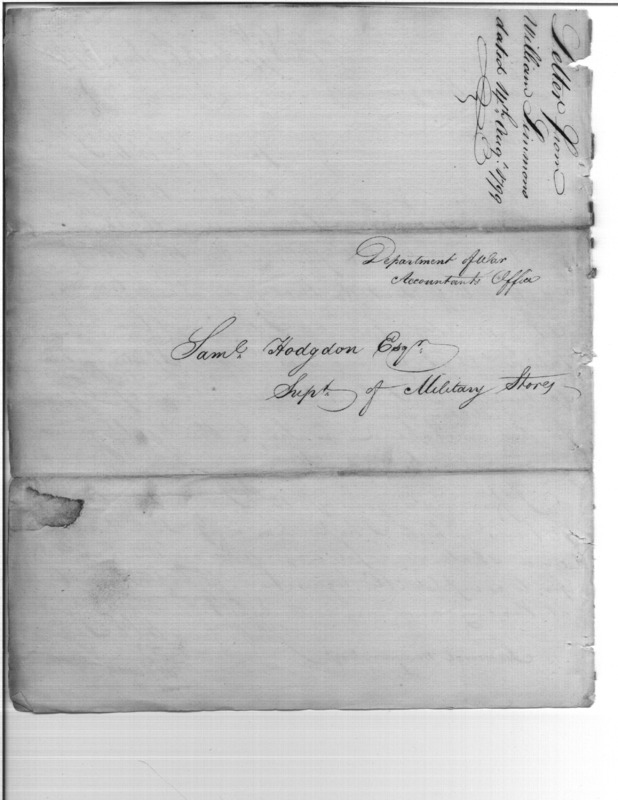 Letter from
William Simmons
dated 14th Aug.t 1799
Department of War
Accountants Office
Sam.l Hodgdon Esq.r
Sup.t of Military Stores